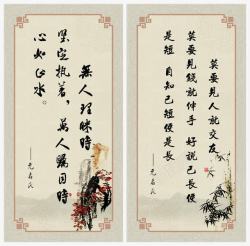 無人理睬時
堅定執著，萬人矚目時
心如止水。
——无名氏
莫要見人就交友
莫要見錢就伸手 好說己長便
是短 自知己短便是長
——无名氏